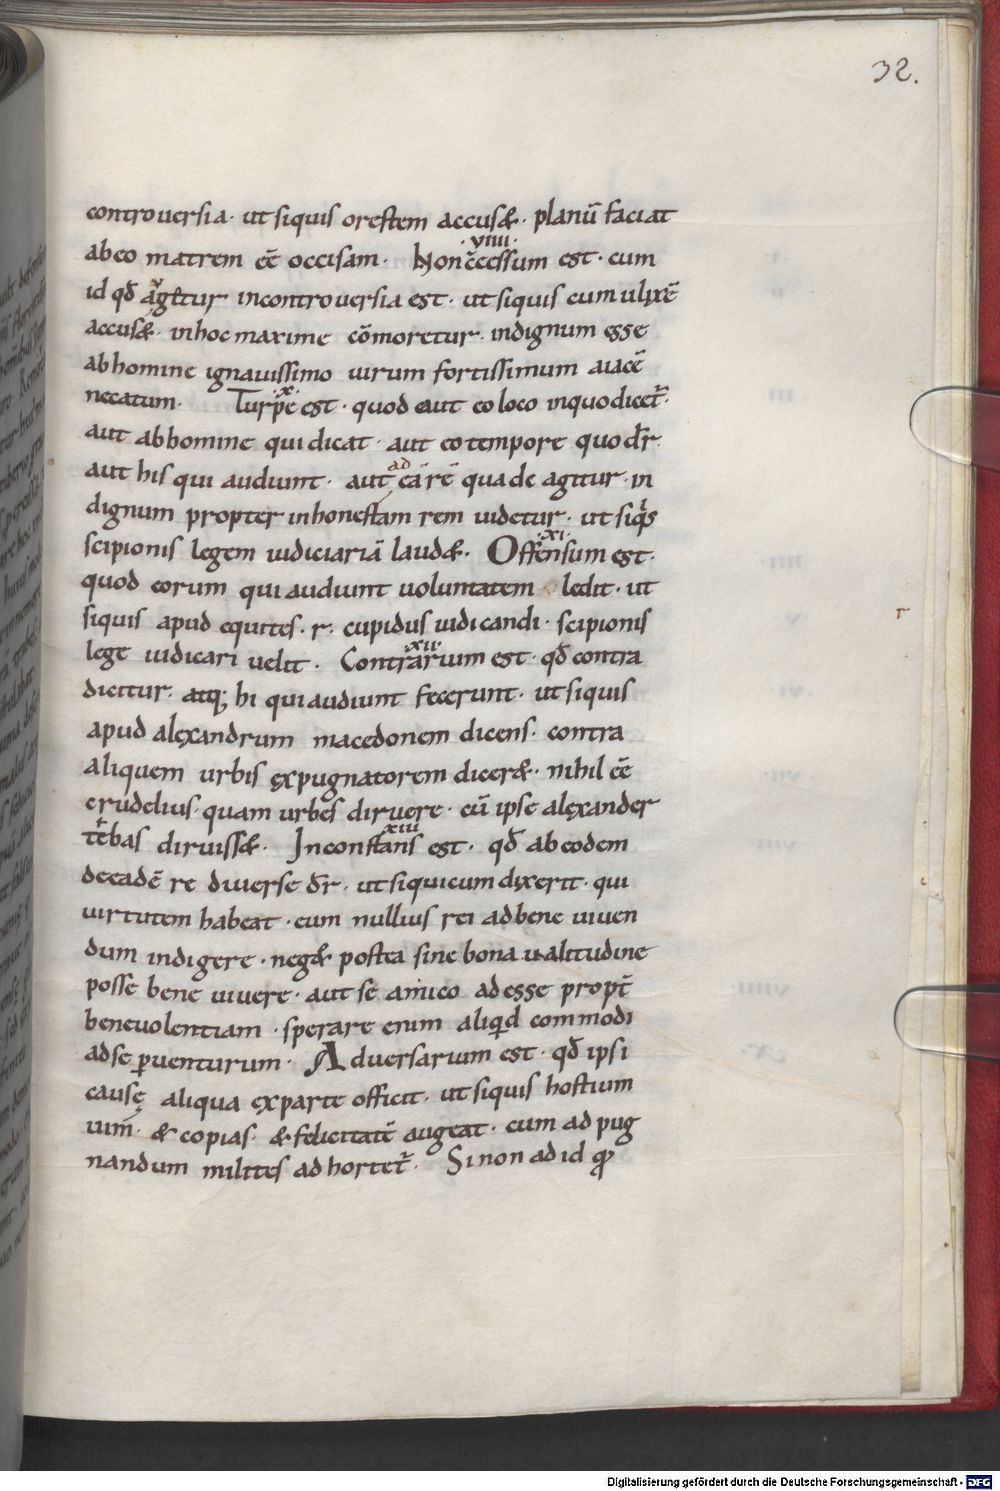 32.
controuersia · ut siquis orestem accus& · planū faciat
abeo matrem eē occisam · Non c̄cessum est · cum
·VIIII·
id qd̄ agitur incontrouersia est · ut siquis cum ulixē
accus& · inhoc maxime cōmoretur · indignum esse
abhomine ignauissimo uirum fortissimum aiacē
necatum · Turpe est · quod aut eo loco inquo dicet̄ ·
·X·
aut abhomine qui dicat · aut eo tempore quo dr̄ ·
aut his qui audiunt · aut ea rē qua de agitur · in
ad
dignum propter inhonestam rem uidetur · ut siqis
scipionis legem iudiciariā laud& · Offensum est ·
·XI·
quod eorum qui audiunt uoluntatem ledit · ut
siquis apud equites · r · cupidus iudicandi · scipionis
r
lege iudicari uelit · Contrarium est · qd̄ contra
·XII·
dicitur · atq; hi qui audiunt fecerunt · ut siquis
apud alęxandrum macedonem dicens · contra
aliquem urbis ęxpugnatorem dicer& · nihil eē
crudelius · quam urbes diruere · cū ipse alęxander
tebas diruiss& · Inconstans est · qd̄ ab eodem
XIII
deeadē re diuerse dr̄ · ut siquicum dixerit · qui
uirtutem habeat · eum nullius rei adbene uiuen
dum indigere · neg& postea sine bona ualitudine
posse bene uiuere · aut se amico adesse propt̄
beneuolentiam · sperare enim aliqid commodi
adse ꝑuenturum · Aduersarium est · qd̄ ipsi
causę aliqua ęxparte officit · ut siquis hostium
uim̄ · & copias · & felicitatē augeat · cum ad pug
nandum milites ad hortet̄ · Si non ad id
Digitalisierung gefördert durch die Deutsche Forschungsgemeinschaft - DFG